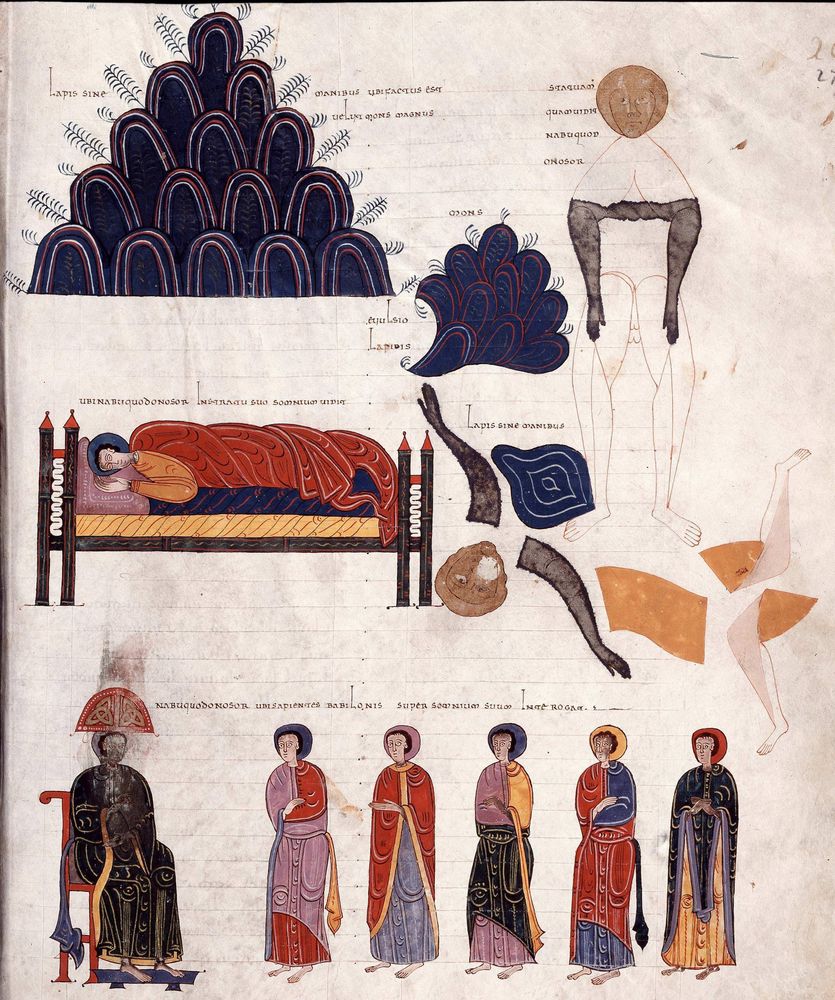 Lapis sine manibus ubi factus est
uelut mons magnus
statuam
quam uidit
nabuquod
onosor
mons
euulsio
lapidis
ubi nabuquodonosor in stratu suo somnium uidit
Lapis sine manibus
nabuquodonosor ubi sapientes babilonis super somnium suum interrogat.